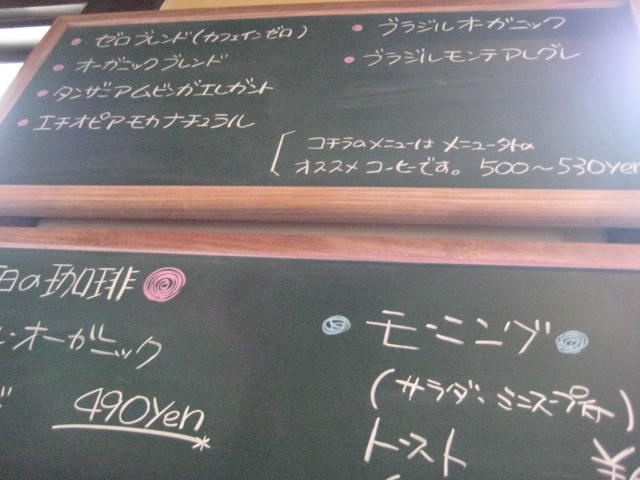 ゼロブレンド(カフェインゼロ)
オーガニックブレンド
タンザニアムビンガエレガント
エチオピアモカナチュラル
ブラジルオーガニック
ブラジルモンテアレグレ
コチラのメニューは メニュー外の
オススメコーヒーです。 500～530yen
日の珈琲
・オーガニック
ド
490Yen
モーニング
(サラダ・ミニスープ付)
トースト
¥